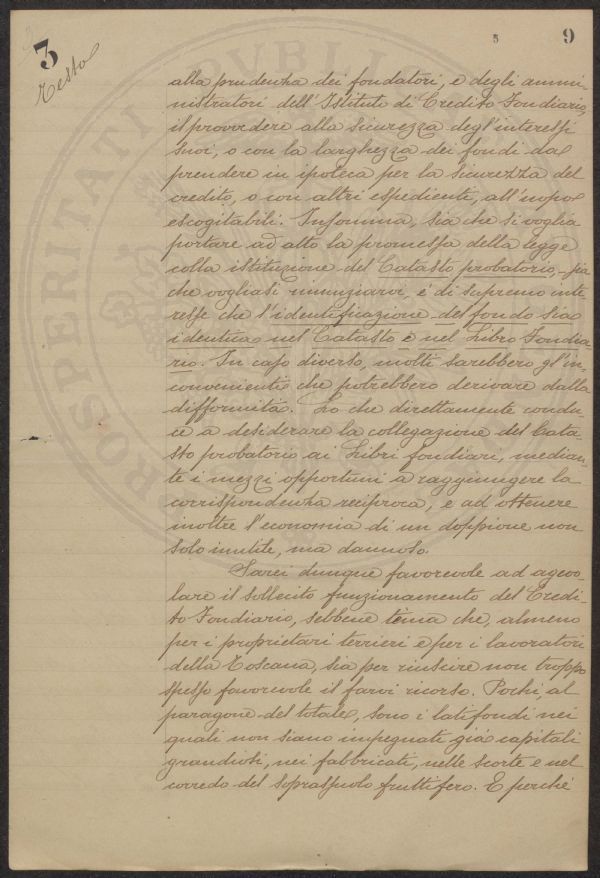 3
Testo
5
9
alla prudenza dei fondatori, e degli ammi-
nistratori dell'Istituto di Credito Fondiario,
il provvedere alla sicurezza degl'interessi
suoi, o con la larghezza dei fondi da
prendere in ipoteca per la sicurezza del
credito, o con altri espedienti, all'uopo
escogitabili. Insomma, sia che si voglia
portare ad atto la promessa della legge
colla istituzione del Catasto probatorio, sia
che vogliasi rinunziarvi, è di supremo inte
resse che l'identificazione del fondo sia
identica nel Catasto e nel Libro Fondia
rio. In caso diverso, molti sarebbero gl'in
convenienti che potrebbero derivare dalla
difformità. Lo che direttamente condu
ce a desiderare la collegazione del Cata
sto probatorio ai Libri fondiari, median
te i mezzi opportuni a raggiungere la
corrispondenza reciproca, e ad ottenere
inoltre l'economia di un doppione non
solo inutile, ma dannoso.
Sarei dunque favorevole ad agevo-
lare il sollecito funzionamento del Credi
to Fondiario, sebbene tema che, almeno
per i proprietari terrieri e per i lavoratori
della Toscana, sia per riuscire non troppo
spesso favorevole il farvi ricorso. Pochi, al
paragone del totale, sono i latifondi nei
quali non siano impegnati già capitali
grandiosi, nei fabbricati, nelle scorte e nel
corredo del soprassuolo fruttifero. E perchè
PROSPERITATI PVBLICAE